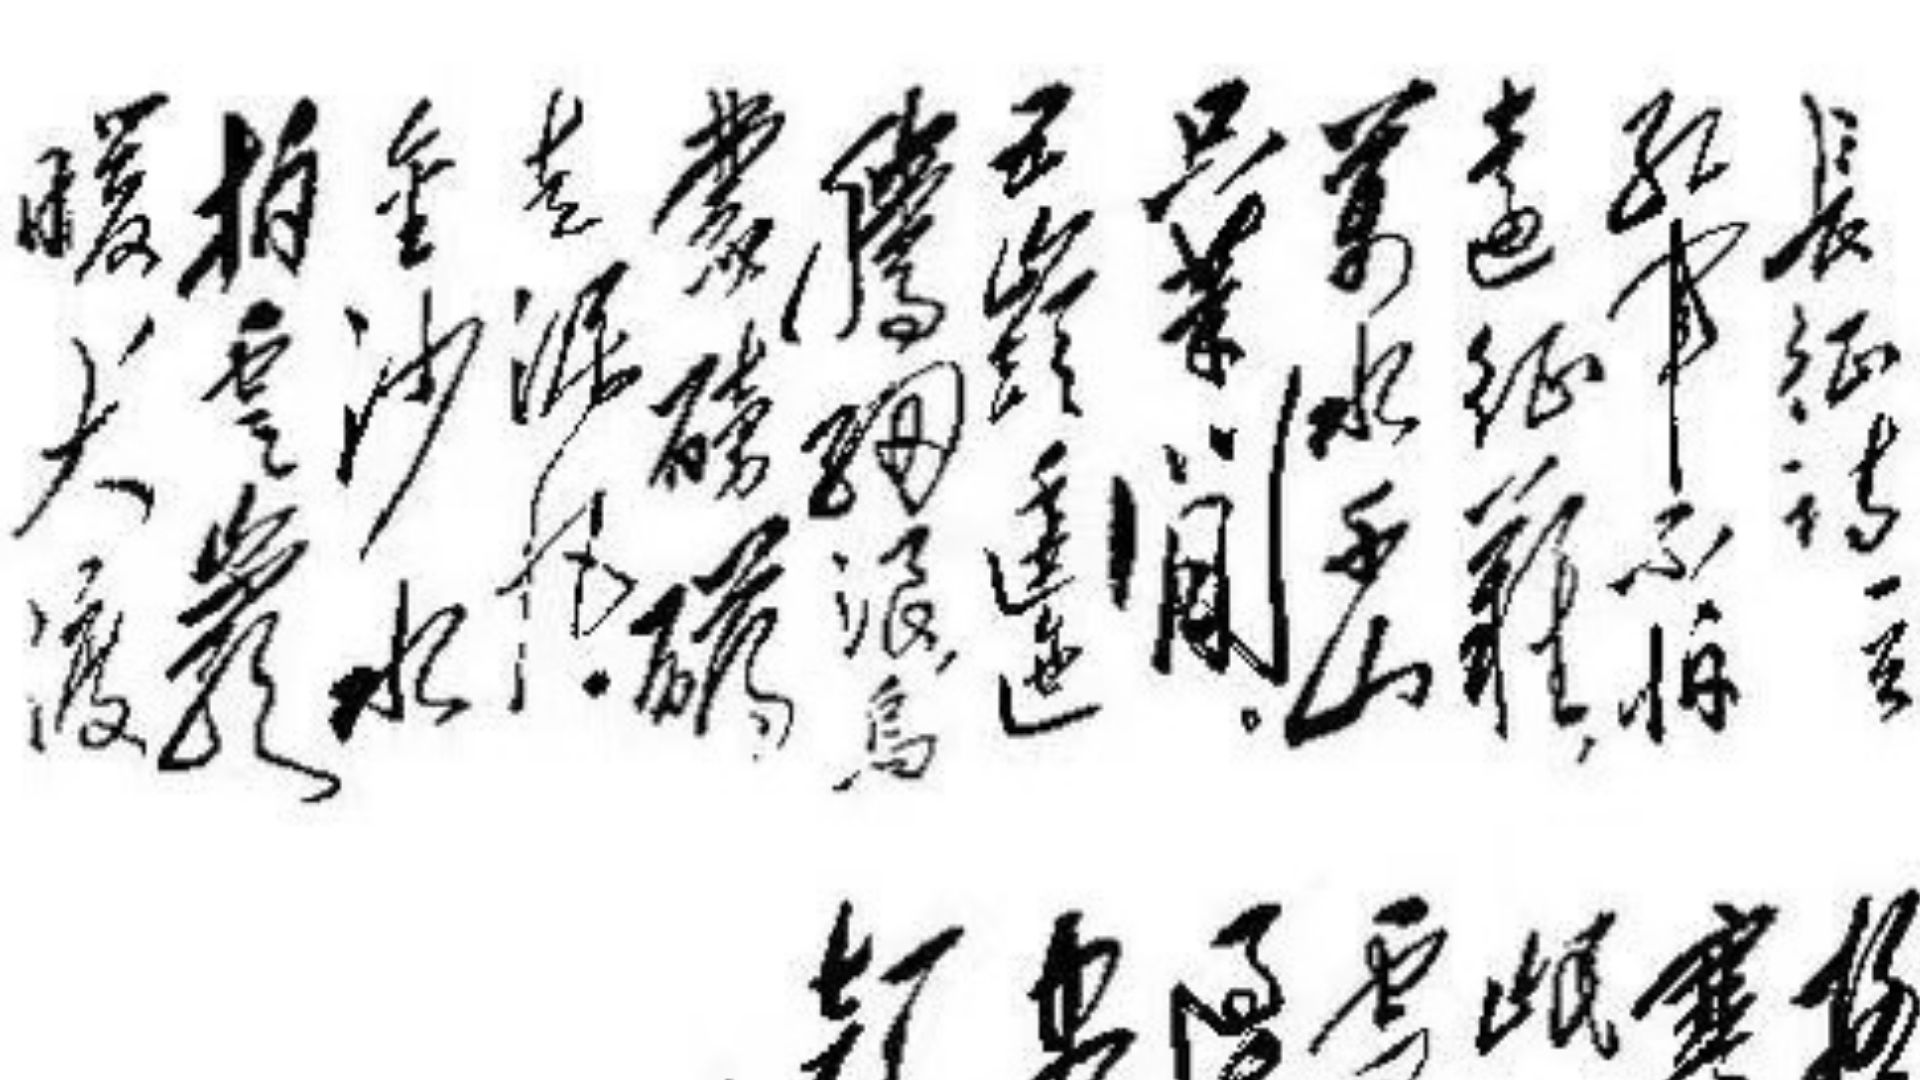 長征詩一首
紅軍不怕
遠征難，
萬水千山
只等閒。
五嶺逶迤
騰細浪，烏
蒙磅礴
走泥丸.
金沙水
拍雲崖
暖大渡
橋
寒
岷
雪